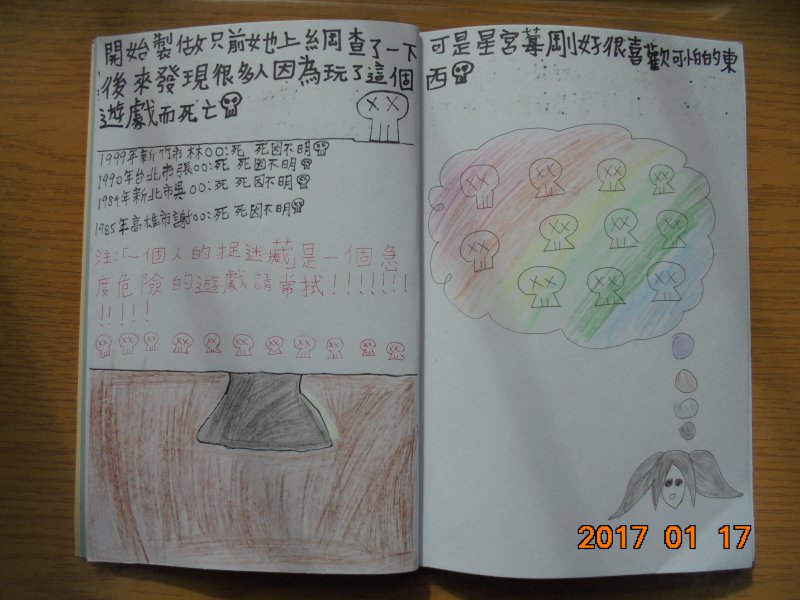 開始製做只前她也上網查了一下
後來發現很多人因為玩了這個
遊戲而死亡
1999年新竹市林OO:死 死因不明
1990年台北市張OO:死 死因不明
1989年新北市吳OO:死 死因不明
1985年高雄市謝OO:死 死因不明
注:「一個人的捉迷藏」是一個急
度危險的遊戲請常拭!!!!!!!
!!!!!
可是星宮莓剛好很喜歡可怕的東
西
2017 01 17